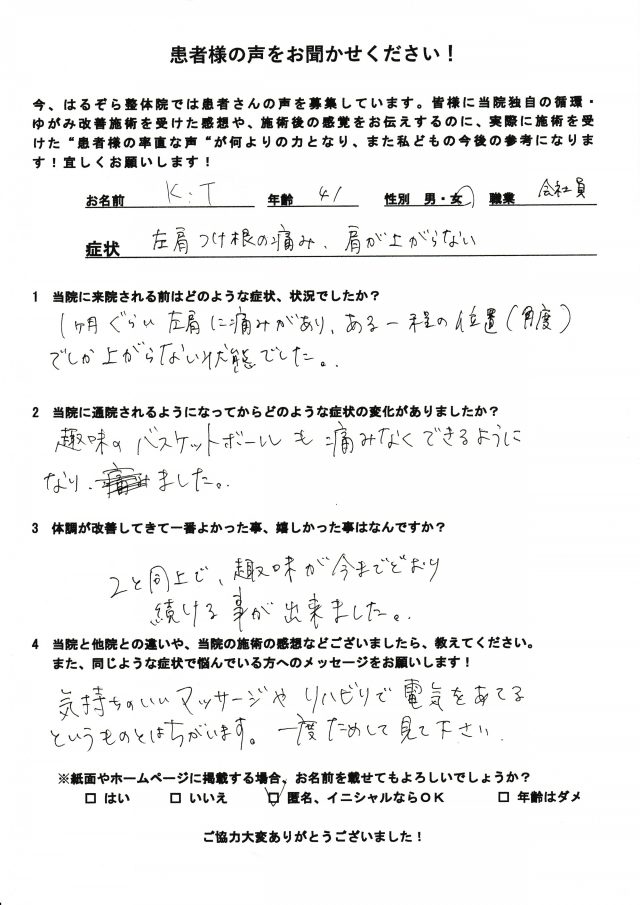 患者様の声をお聞かせください！
今、はるぞら整体院では患者さんの声を募集しています。皆様に当院独自の循環・
ゆがみ改善施術を受けた感想や、施術後の感覚をお伝えするのに、実際に施術を受
けた“患者様の率直な声“が何よりの力となり、また私どもの今後の参考になりま
す！宜しくお願いします！
お名前 K.T 年齢 41 性別 男・女 職業 会社員
症状 左肩つけ根の痛み、肩が上がらない
1 当院に来院される前はどのような症状、状況でしたか？
1ヶ月ぐらい左肩に痛みがあり、ある一程の位置(角度)
でしか上がらない状態でした。
2 当院に通院されるようになってからどのような症状の変化がありましたか？
趣味のバスケットボールも痛みなくできるように
なり、ました。
3 体調が改善してきて一番よかった事、嬉しかった事はなんですか？
2と同上で、趣味が今までどおり
続ける事が出来ました。
4 当院と他院との違いや、当院の施術の感想などございましたら、教えてください。
また、同じような症状で悩んでいる方へのメッセージをお願いします！
気持ちのいいマッサージやリハビリで電気をあてる
というものとはちがいます。一度ためして見て下さい。
※紙面やホームページに掲載する場合、お名前を載せてもよろしいでしょうか？
□ はい □ いいえ ☑ 匿名、イニシャルならＯＫ □ 年齢はダメ
ご協力大変ありがとうございました！